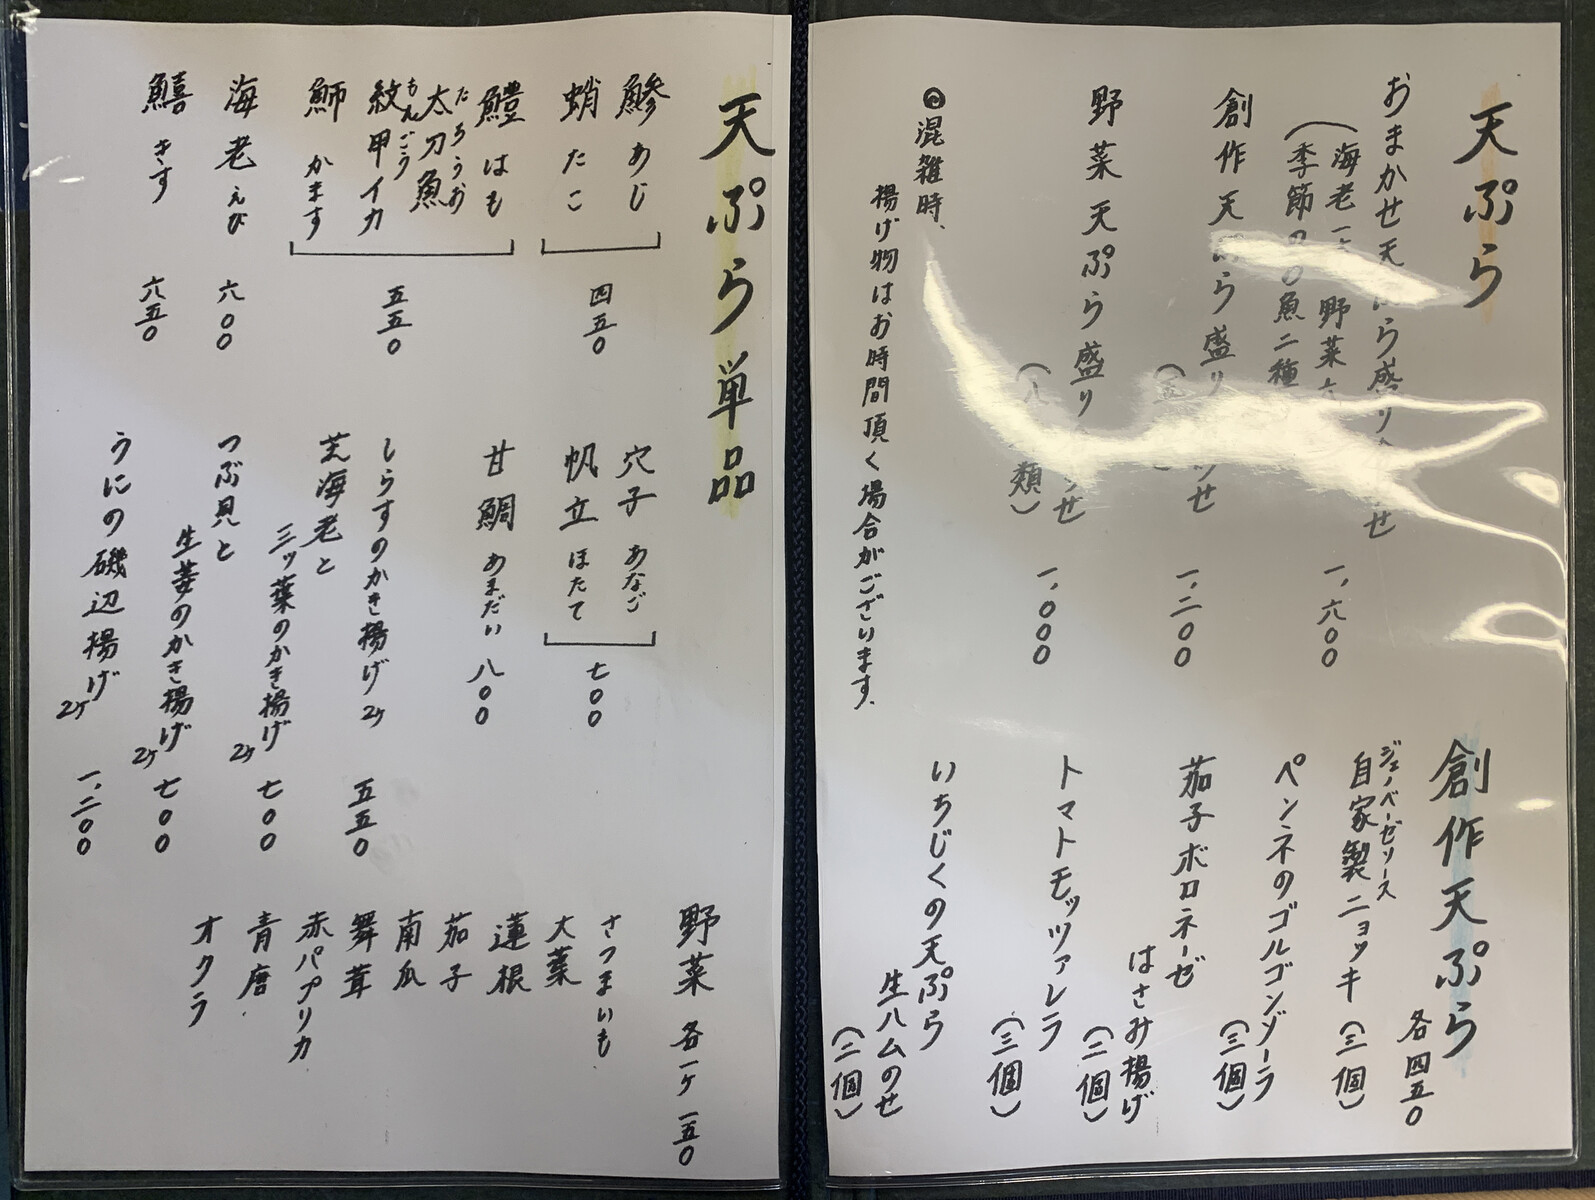 天ぷら
おまかせ天ぷら盛り合せ
(海老一 野菜六
(季節の魚二種
一、六〇〇
創作天ぷら盛り合せ
一、二〇〇
野菜天ぷら盛り合せ
(八 類)
一、〇〇〇
◎混雑時、
揚げ物はお時間頂く場合がございます。
創作天ぷら
各四五〇
ジェノベーゼソース
自家製ニョッキ (三個)
ペンネのゴルゴンゾーラ
(三個)
茄子ボロネーゼ
はさみ揚げ
(二個)
トマトモッツァレラ
(三個)
いちじくの天ぷら
生ハムのせ
(二個)
天ぷら単品
鯵 あじ
蛸 たこ
四五〇
鱧 はも
太刀魚 たちうお
紋甲イカ もんごう
魳 かます
五五〇
海老 えび 六〇〇
鱚 きす 六五〇
穴子 あなご
帆立 ほたて
七〇〇
甘鯛 あまだい 八〇〇
しらすのかき揚げ 2ヶ 五五〇
芝海老と
三ッ葉のかき揚げ 2ヶ 七〇〇
つぶ貝と
生姜のかき揚げ 2ヶ 七〇〇
うにの磯辺揚げ 2ヶ 一、二〇〇
野菜 各一ヶ 一五〇
さつまいも
大葉
蓮根
茄子
南瓜
舞茸
赤パプリカ
青唐
オクラ